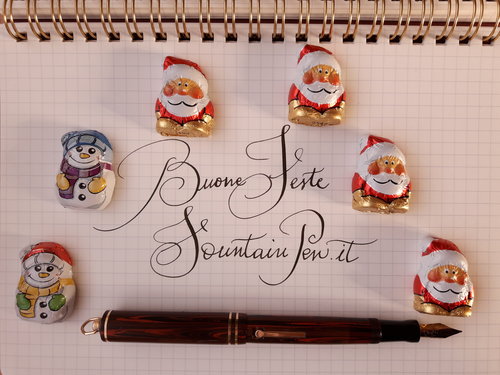 Buone Feste
FountainPen.it